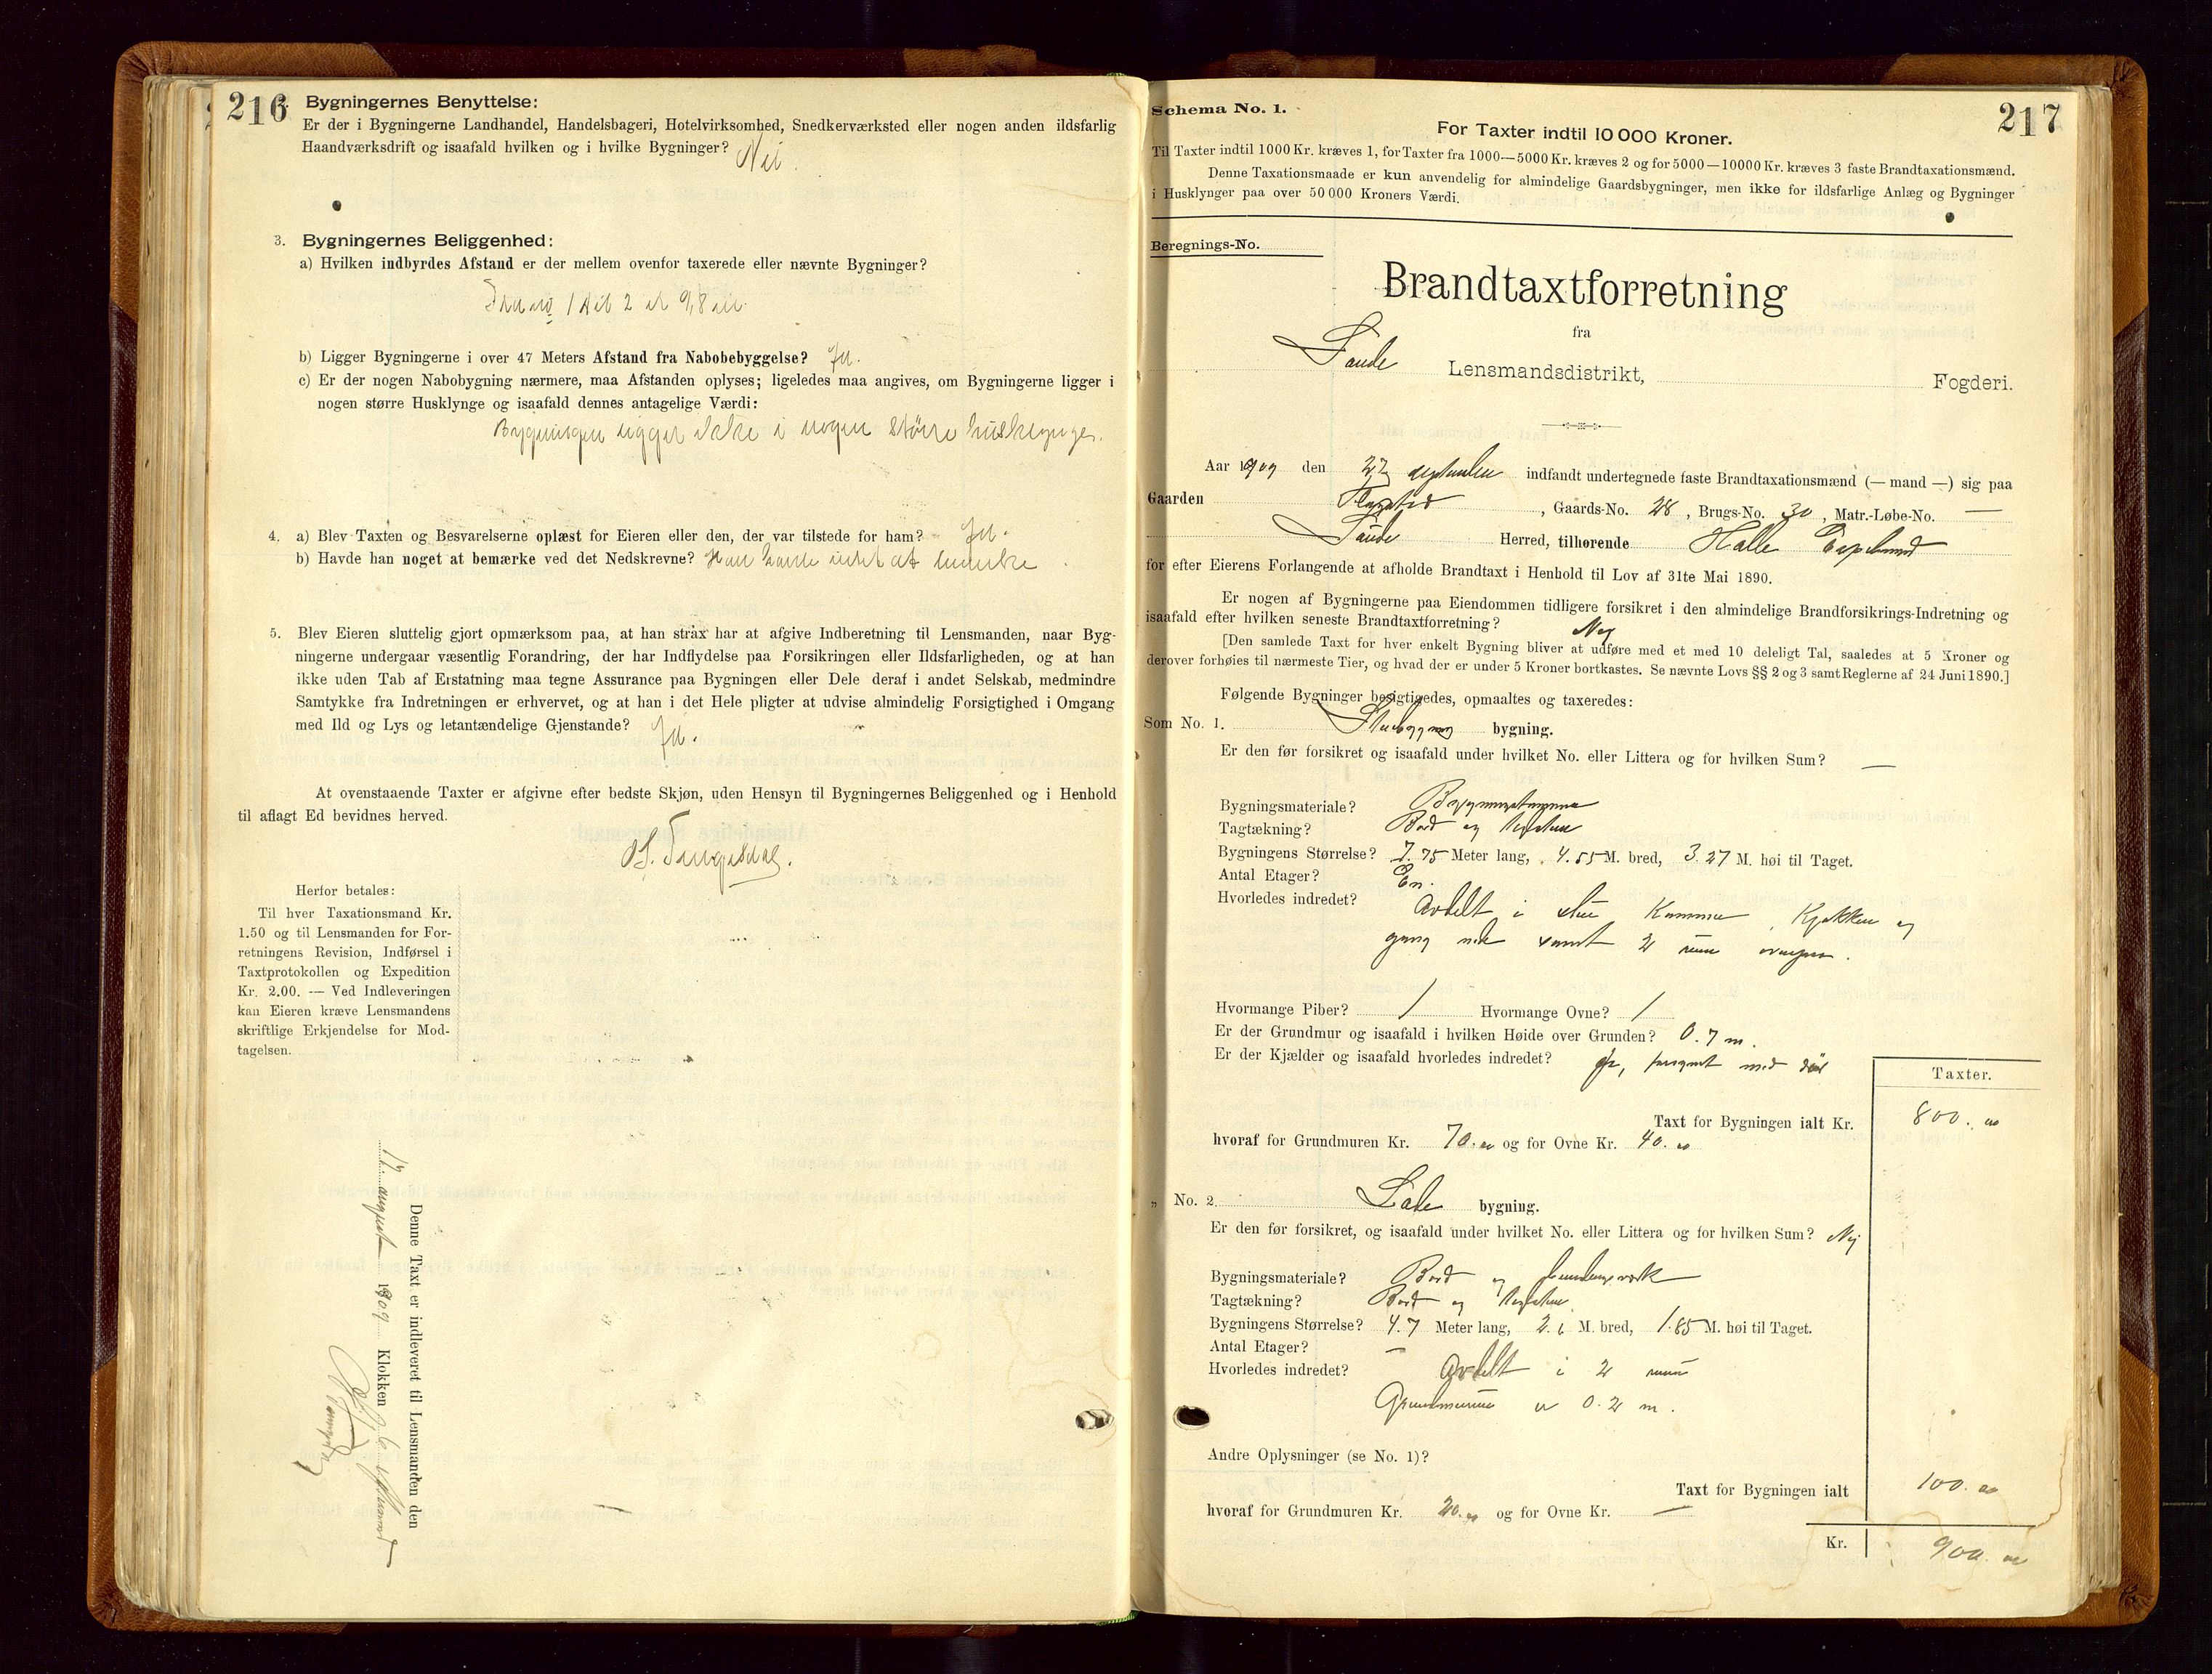 216
Bygningernes Benyttelse:
Er der i Bygningerne Landhandel, Handelsbageri, Hotelvirksomhed, Snedkerværksted eller nogen anden ildsfarlig
Haandværksdrift og isaafald hvilken og i hvilke Bygninger? Nei.
3. Bygningernes Beliggenhed:
a) Hvilken indbyrdes Afstand er der mellem ovenfor taxerede eller nævnte Bygninger?
1 til 2 er 9,8 m.
b) Ligger Bygningerne i over 47 Meters Afstand fra Nabobebyggelse? Ja.
c) Er der nogen Nabobygning nærmere, maa Afstanden oplyses; ligeledes maa angives, om Bygningerne ligger i
nogen større Husklynge og isaafald dennes antagelige Værdi:
Bygningen ligger ikke i nogen större husklynge.
4. a) Blev Taxten og Besvarelserne oplæst for Eieren eller den, der var tilstede for ham? Ja.
b) Havde han noget at bemærke ved det Nedskrevne? Han havde intet at bemerke.
5. Blev Eieren sluttelig gjort opmærksom paa, at han strax har at afgive Indberetning til Lensmanden, naar Byg-
ningerne undergaar væsentlig Forandring, der har Indflydelse paa Forsikringen eller Ildsfarligheden, og at han
ikke uden Tab af Erstatning maa tegne Assurance paa Bygningen eller Dele deraf i andet Selskab, medmindre
Samtykke fra Indretningen er erhvervet, og at han i det Hele pligter at udvise almindelig Forsigtighed i Omgang
med Ild og Lys og letantændelige Gjenstande? Ja.
At ovenstaaende Taxter er afgivne efter bedste Skjøn, uden Hensyn til Bygningernes Beliggenhed og i Henhold
til aflagt Ed bevidnes herved.
Herfor betales:
Til hver Taxationsmand Kr.
1.50 og til Lensmanden for For-
retningens Revision, Indførsel i
Taxtprotokollen og Expedition
Kr. 2.00. — Ved Indleveringen
kan Eieren kræve Lensmandens
skriftlige Erkjendelse for Mod-
tagelsen.
Denne Taxt er indleveret til Lensmanden den
17 august 1909 Klokken
217
Schema No. 1.
For Taxter indtil 10 000 Kroner.
Til Taxter indtil 1000 Kr. kræves 1, for Taxter fra 1000—5000 Kr. kræves 2 og for 5000—10000 Kr. kræves 3 faste Brandtaxationsmænd.
Denne Taxationsmaade er kun anvendelig for almindelige Gaardsbygninger, men ikke for ildsfarlige Anlæg og Bygninger
i Husklynger paa over 50 000 Kroners Værdi.
Beregnings-No.
Brandtaxtforretning
fra
Saude Lensmandsdistrikt, Fogderi.
Aar 1909 den 27 september indfandt undertegnede faste Brandtaxationsmænd (— mand —) sig paa
Gaarden , Gaards-No. 28, Brugs-No. 30, Matr.-Løbe-No. —
Saude Herred, tilhørende Halle
for efter Eierens Forlangende at afholde Brandtaxt i Henhold til Lov af 31te Mai 1890.
Er nogen af Bygningerne paa Eiendommen tidligere forsikret i den almindelige Brandforsikrings-Indretning og
isaafald efter hvilken seneste Brandtaxtforretning? Nej
[Den samlede Taxt for hver enkelt Bygning bliver at udføre med et med 10 deleligt Tal, saaledes at 5 Kroner og
derover forhøies til nærmeste Tier, og hvad der er under 5 Kroner bortkastes. Se nævnte Lovs §§ 2 og 3 samt Reglerne af 24 Juni 1890.]
Følgende Bygninger besigtigedes, opmaaltes og taxeredes:
Som No. 1. Stuebygning bygning.
Er den før forsikret og isaafald under hvilket No. eller Littera og for hvilken Sum? —
Bygningsmateriale?
Tagtækning? Bord og
Bygningens Størrelse? 7.75 Meter lang, 4.55 M. bred, 3.27 M. høi til Taget.
Antal Etager? En.
Hvorledes indredet? Avdelt i stue Kammer, Kjøkken og
gang ned samt 2 rum ovenpaa.
Hvormange Piber? 1 Hvormange Ovne? 1
Er der Grundmur og isaafald i hvilken Høide over Grunden? 0.7 m.
Er der Kjælder og isaafald hvorledes indredet? forsynet med dör
Taxter.
Taxt for Bygningen ialt Kr. 800. 00
hvoraf for Grundmuren Kr. 70.00 og for Ovne Kr. 40.00
" No. 2 Lade bygning.
Er den før forsikret, og isaafald under hvilket No. eller Littera og for hvilken Sum? Nej
Bygningsmateriale? Bord og bindingsverk
Tagtækning? Bord og
Bygningens Størrelse? 4.7 Meter lang, 2.6 M. bred, 1.85 M. høi til Taget.
Antal Etager? —
Hvorledes indredet? Avdelt i 2 rum
Grundmuren er 0.2 m.
Andre Oplysninger (se No. 1)?
Taxt for Bygningen ialt 100. 00
hvoraf for Grundmuren Kr. 20.00 og for Ovne Kr. —
Kr. 900. 00